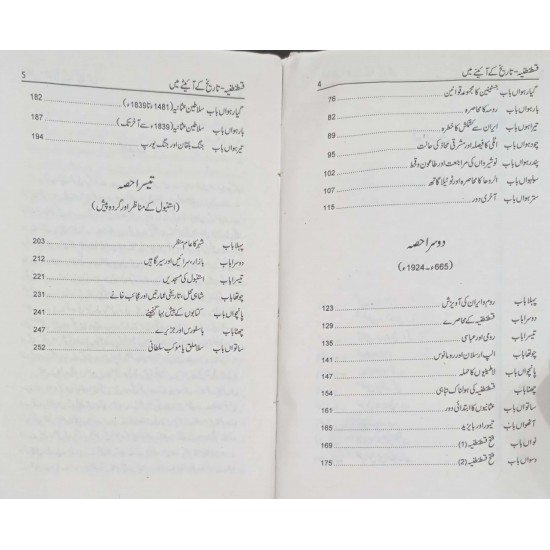 4 قسطنطنیہ - تاریخ کے آئینے میں
گیارہواں باب جسٹینین کا مجموعہ قوانین 76
بارہواں باب روما کا محاصرہ 82
تیرہواں باب ایران سے کشمکش کا خطرہ 89
چودہواں باب اٹلی کا فیصلہ اور مشرقی محاذ کی حالت 95
پندرہواں باب نوشیرواں کی مراجعت اور طاعون و قحط 102
سولہواں باب الروحا کا محاصرہ اور ٹوٹیلا گاتھ 107
سترہواں باب آخری دور 115
دوسرا حصہ
(665ء - 1924ء)
پہلا باب روم و ایران کی آویزش 123
دوسرا باب قسطنطنیہ کے محاصرے 129
تیسرا باب رومی اور عباسی 135
چوتھا باب الپ ارسلان اور رومانوس 141
پانچواں باب لاطینیوں کا حملہ 147
چھٹا باب قسطنطنیہ کی ہولناک تباہی 154
ساتواں باب عثمانیوں کا ابتدائی دور 161
آٹھواں باب تیمور اور بایزید 165
نواں باب فتح قسطنطنیہ (1) 169
دسواں باب فتح قسطنطنیہ (2) 175
5 قسطنطنیہ - تاریخ کے آئینے میں
گیارہواں باب سلاطین عثمانیہ (1481ء تا 1839ء) 182
بارہواں باب سلاطین عثمانیہ (1839ء سے آخر تک) 187
تیرہواں باب جنگ بلقان اور جنگ یورپ 194
تیسرا حصہ
(استنبول کے مناظر اور گردو پیش)
پہلا باب شہر کا عام منظر 203
دوسرا باب بازار، سرائیں اور سیر گاہیں 212
تیسرا باب استنبول کی مسجدیں 221
چوتھا باب شاہی محل، تاریخی عمارتیں اور عجائب خانے 231
پانچواں باب کتابوں کے بیش بہا گنجینے 241
چھٹا باب باسفورس اور جزیرے 247
ساتواں باب سلاملق یا موکب سلطانی 252